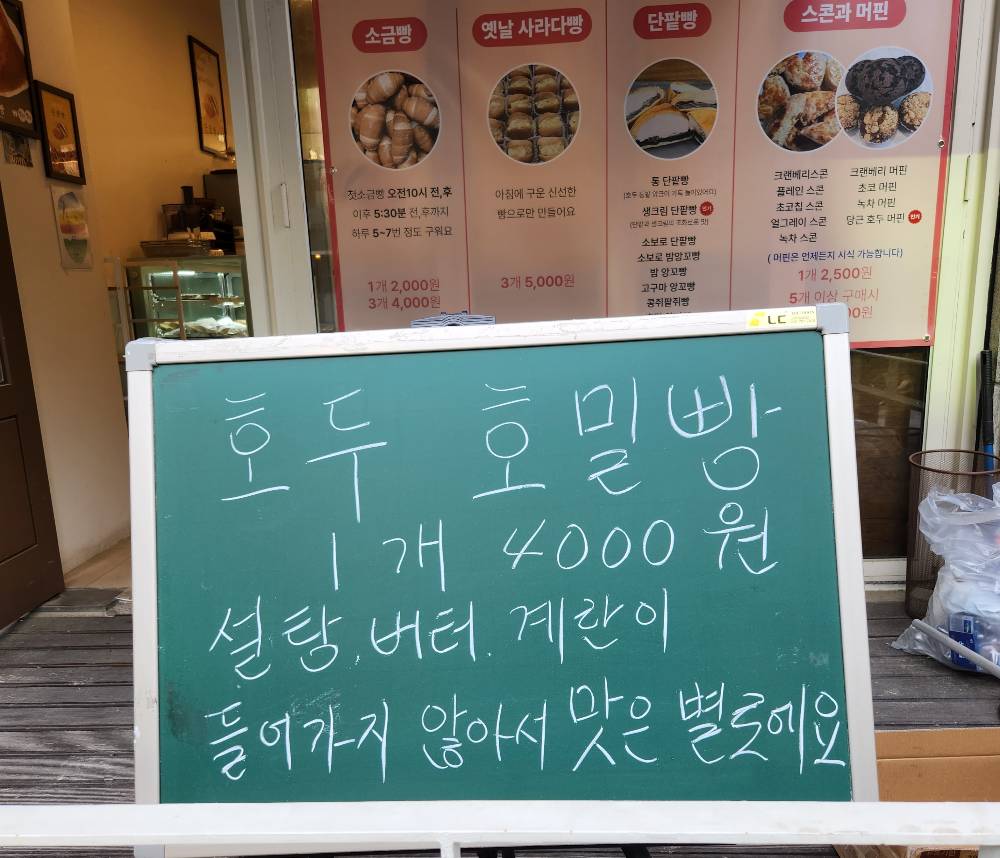 소금빵
첫소금빵 오전10시 전,후
이후 5:30분 전,후까지
하루 5~7번 정도 구워요
1개 2,000원
3개 4,000원
옛날 사라다빵
아침에 구운 신선한
빵으로만 만들어요
3개 5,000원
단팥빵
통 단팥빵
생크림 단팥빵 인기
소보로 단팥빵
소보로 밤앙꼬빵
밤 앙꼬빵
고구마 앙꼬빵
콩쥐팥쥐빵
스콘과 머핀
크랜베리스콘
플레인 스콘
초코칩 스콘
얼그레이 스콘
녹차 스콘
크랜베리 머핀
초코 머핀
녹차 머핀
당근 호두 머핀 인기
( 머핀은 언제든지 시식 가능합니다)
1개 2,500원
5개 이상 구매시
LC
호두 호밀빵
1개 4000원
설탕. 버터. 계란이
들어가지 않아서 맛은 별로에요